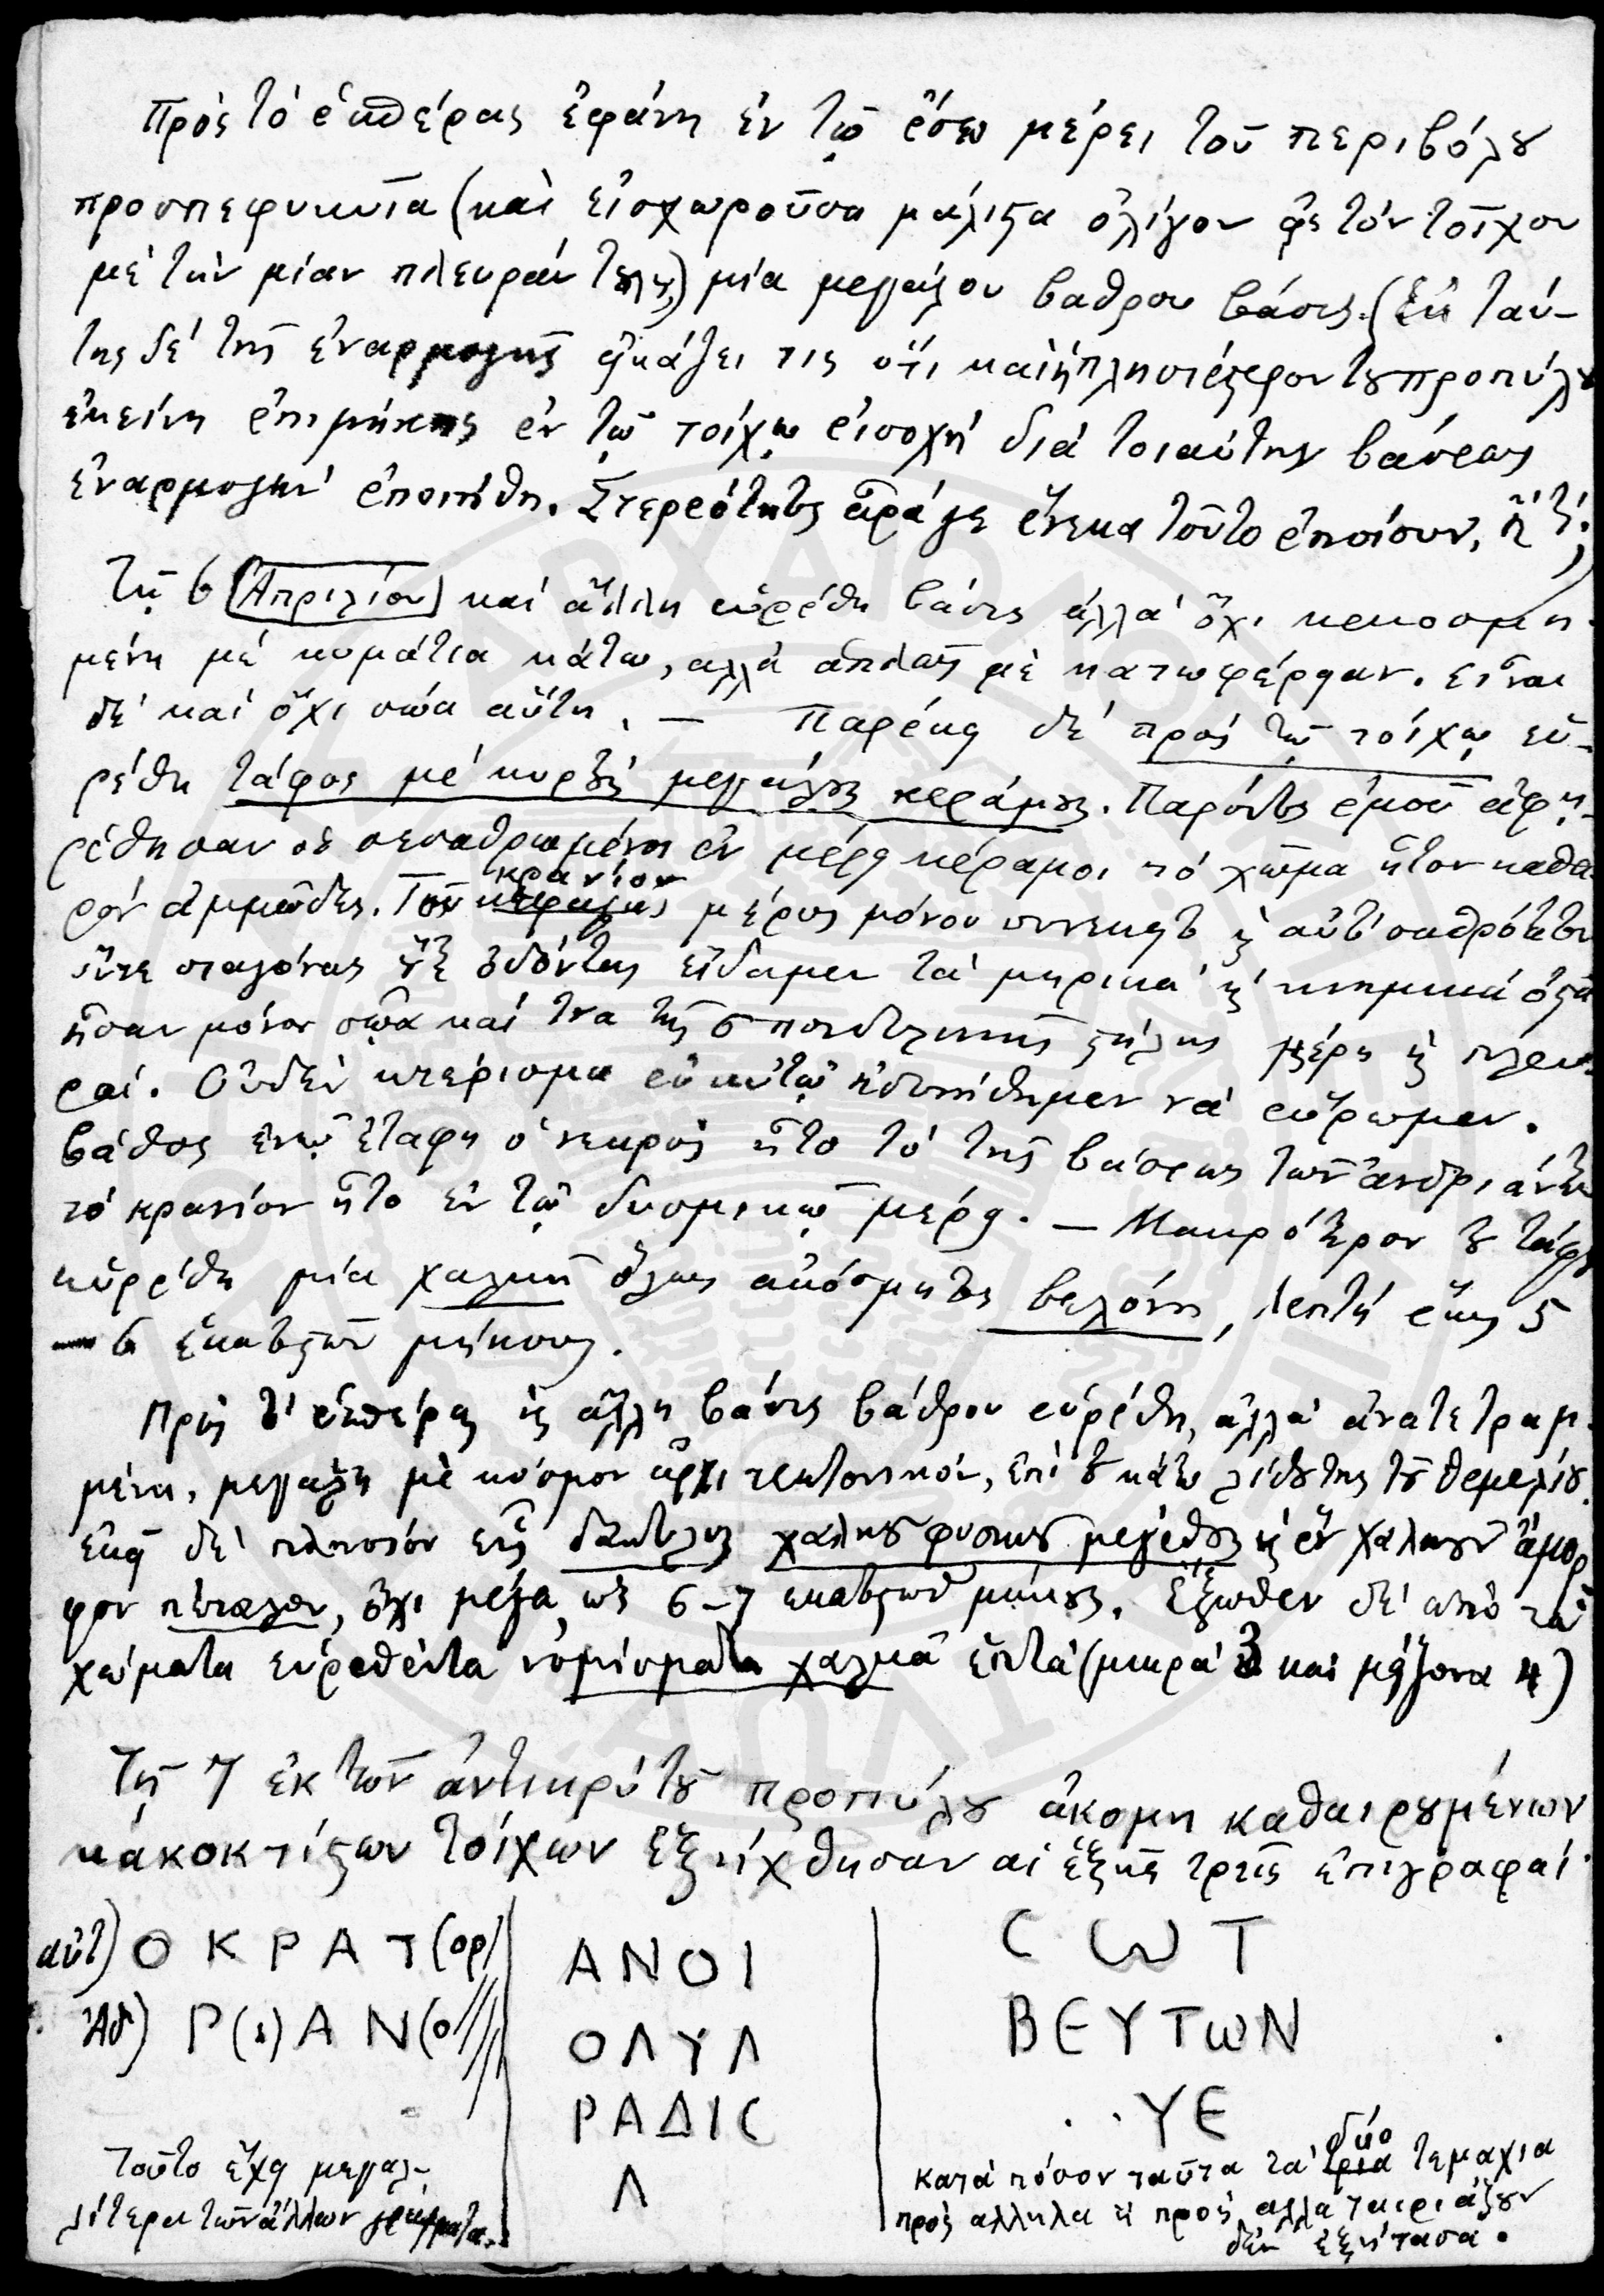 Πρὸς τὸ ἑσπέρας ἐφάνη ἐν τῷ ἔσω μέρει τοῦ περιβόλου
προσπεφυκυῖα (καὶ εἰσχωροῦσα μάλιστα ὀλίγον εἰς τὸν τοῖχον
μὲ τὴν μίαν πλευράν της) μία μεγάλου βάθρου βάσις. (Ἐκ ταύ-
της δὲ τῆς ἐναρμογῆς εἰκάζει τις ὅτι καὶ ἡ πλησιέστερον τοῦ προπύλου
ἐκείνη ἐπιμήκης ἐν τῷ τοίχῳ εἰσοχὴ διὰ τοιαύτης βάσεως
ἐναρμογὴν ἐποιήθη. Στερεότητος ἆρά γε ἕνεκα τοῦτο ἐποίουν, ἢ τί;
Τῇ 6 Ἀπριλίου καὶ ἄλλη εὑρέθη βάσις ἀλλὰ ὄχι κεκοσμη-
μένη μὲ κυμάτια κάτω, ἀλλὰ ἁπλῶς μὲ κατωφέρειαν. εἶναι
δὲ καὶ ὄχι σώα αὕτη. — Παρέκει δὲ πρὸς τῷ τοίχῳ εὑ-
ρέθη τάφος μὲ κυρτοὺς μεγάλους κεράμους. Παρόντος ἐμοῦ ἀφῃ-
ρέθησαν οἱ σεσαθρωμένοι ἐν μέρει κέραμοι τὸ χῶμα ἦτον καθα
ρὸν ἀμμῶδες. Τοῦ κρανίου
κεφαλῆς μέρος μόνον συνεκρατ κ αὐτὸ σαθρότατον
οὔτε σιαγόνας οὔτε ὀδόντας εἴδαμεν τὰ μηρικὰ κ κνημικὰ ὀστᾶ
ἦσαν μόνον σῶα καί τινα τῆς σπονδυλικῆς στήλης μέρη κ πλευ-
ραί. Οὐδὲν κτέρισμα ἐν αὐτῷ ἠδυνήθημεν νὰ εὕρωμεν.
βάθος ἐν ᾧ ἐτάφη ὁ νεκρὸς ἦτο τὸ τῆς βάσεως τῶν ἀνδριάντων
τὸ κρανίον ἦτο ἐν τῷ δυσμικῷ μέρει. — Μακρότερον τοῦ τάφου
εὑρέθη μία χαλκῆ ὅλως ἀκόσμητος βελόνη, λεπτὴ ἕως 5
— 6 ἑκατοστῶν μήκους.
Πρὸς τὸ ἑσπέρας κ ἄλλη βάσις βάθρου εὑρέθη, ἀλλὰ ἀνατετραμ-
μένη, μεγάλη μὲ κόσμον ἀρχιτεκτονικόν, ἐπὶ τοῦ κάτω λίθου της τοῦ θεμελίου.
ἐκεῖ δὲ πλησίον εἷς δάκτυλος χαλκοῦς φυσικοῦ μεγέθους κ ἓν χαλκοῦν ἄμορ
φον πέταλον, ὄχι μέγα, ὡς 6-7 ἑκατοστῶν μήκους. Ἔξωθεν δὲ ἀπὸ τὰ
χώματα εὑρεθέντα νομίσματα χαλκᾶ ἑπτά (μικρὰ 3 καὶ μείζονα 4)
Τῇ 7 ἐκ τῶν ἀντικρὺ τοῦ προπύλου ἀκόμη καθαιρουμένων
κακοκτίστων τοίχων ἐξήχθησαν αἱ ἑξῆς τρεῖς ἐπιγραφαί·
αὐτ) Ο Κ Ρ Α Τ (ορ)
Ἀδ) Ρ (ι) Α Ν (ο
Τοῦτο ἔχει μεγαλ-
λίτερα τῶν ἄλλων γράμματα.
ΑΝΟΙ
ΟΛΥΛ
ΡΑΔΙC
Λ
C ω Τ
ΒΕΥΤωΝ
. . ΥΕ
κατὰ πόσον ταῦτα τὰ τρία δύο τεμάχια
πρὸς ἄλληλα ἢ πρὸς ἄλλα ταιριάζουν
δὲν ἐξήτασα.